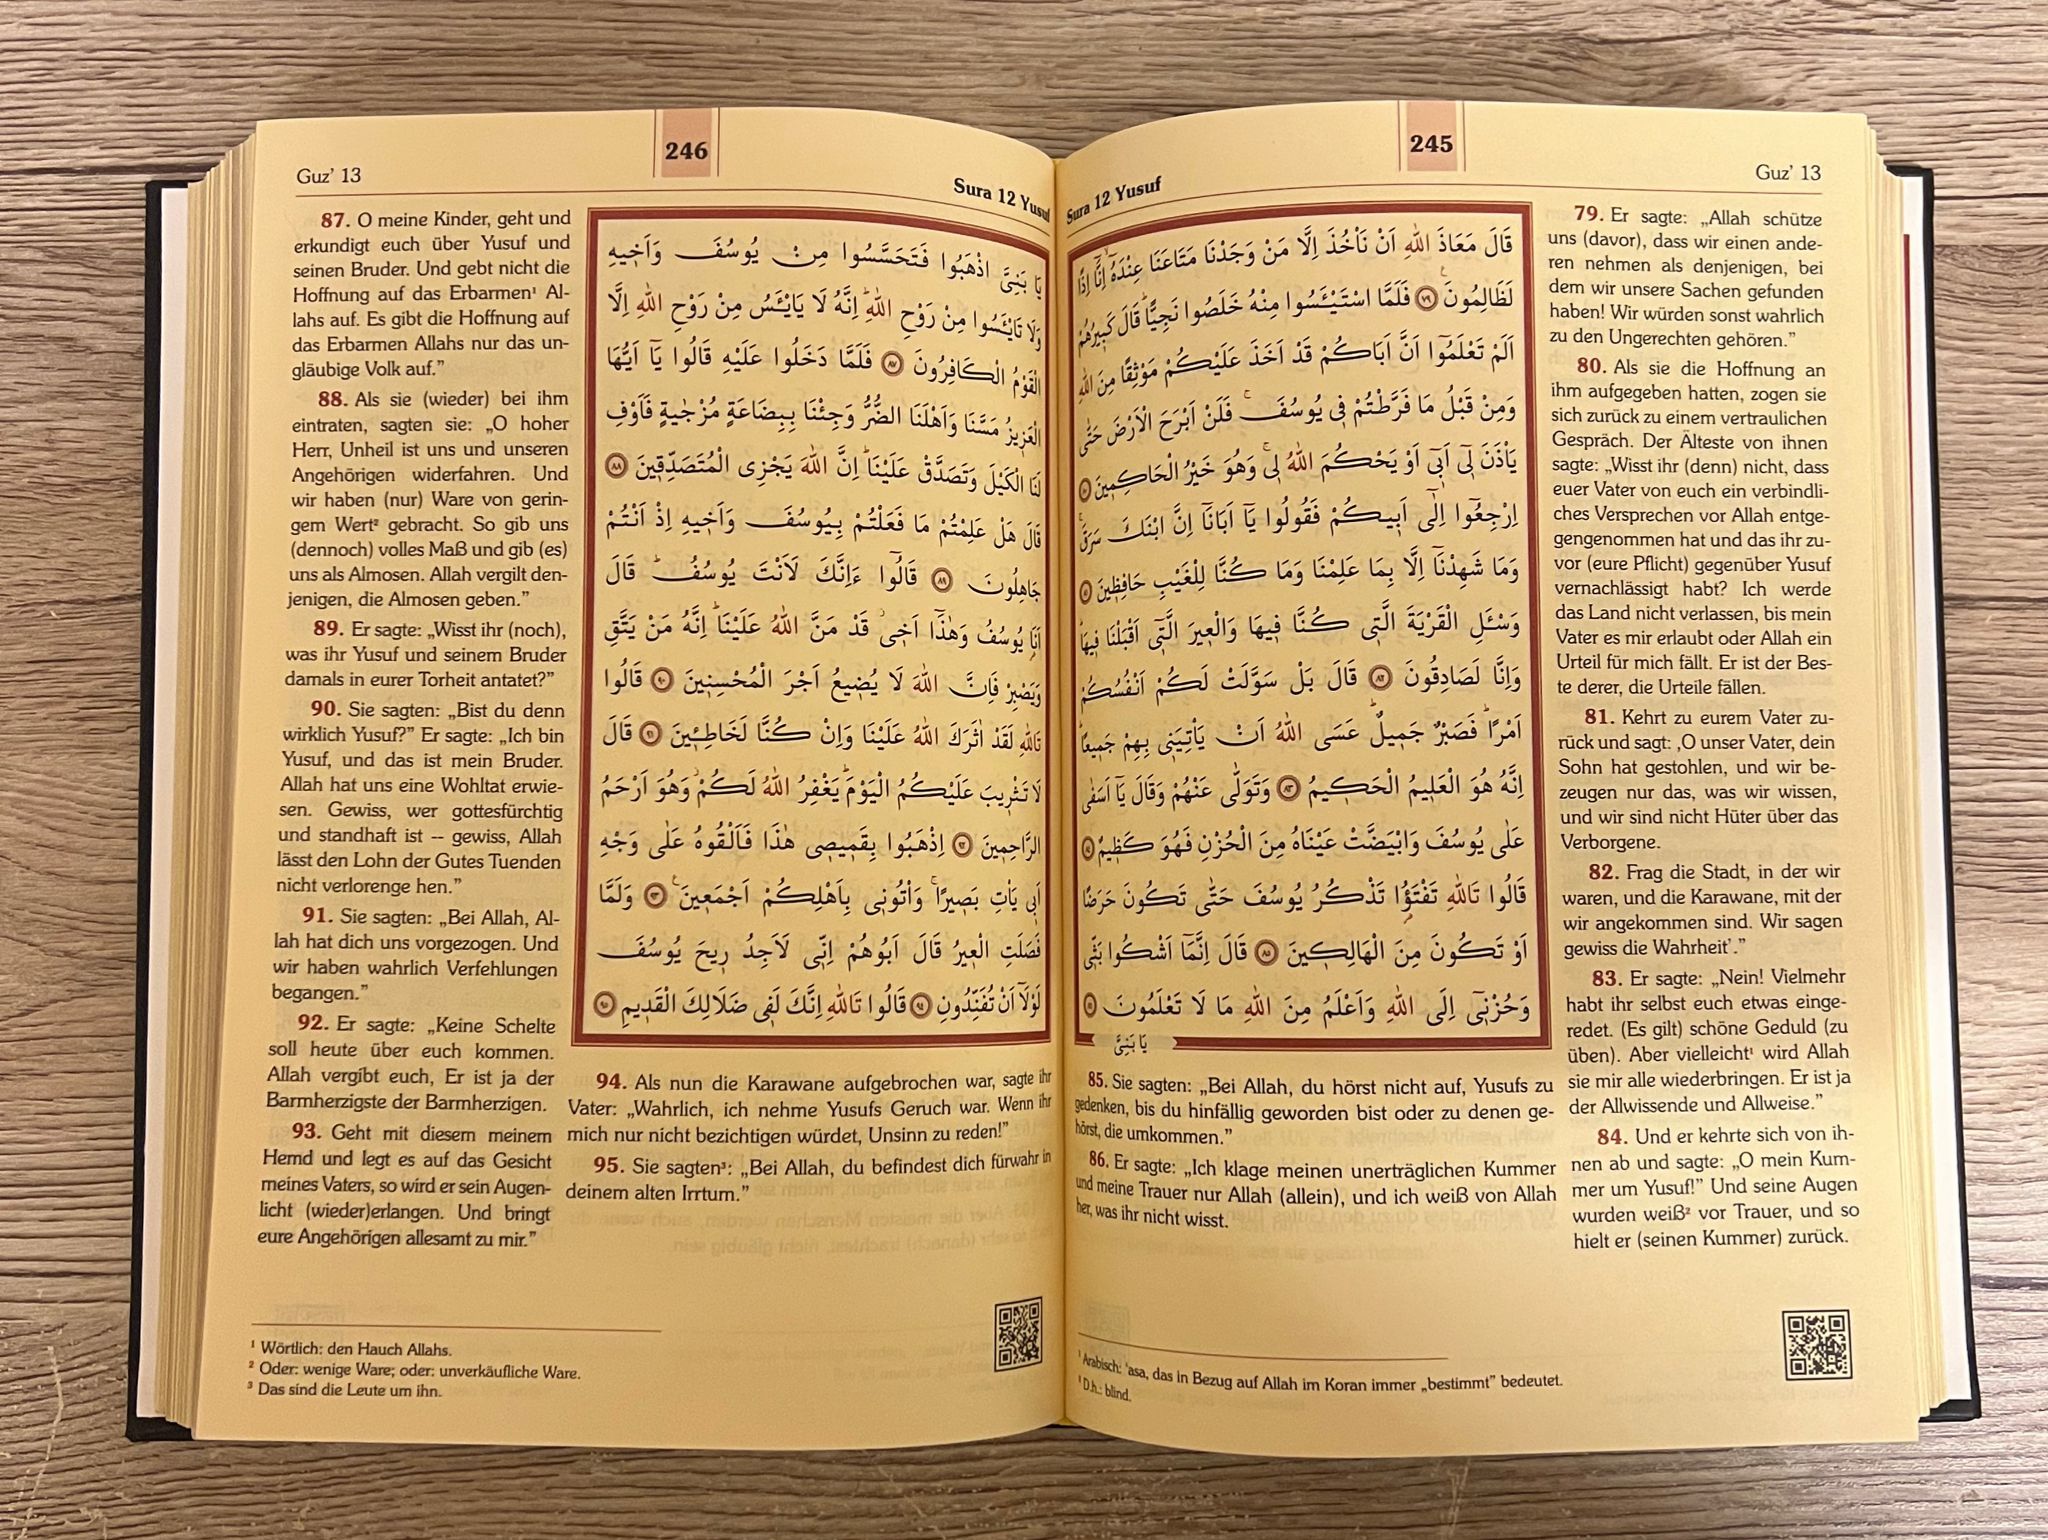 245
Sura 12 Yusuf
Guz’ 13
قَالَ مَعَاذَ اللّٰهِ اَنْ نَأْخُذَ اِلَّا مَنْ وَجَدْنَا مَتَاعَنَا عِنْدَهُٓ اِنَّٓا اِذًا
لَظَالِمُونَ ۟ ﴿٧٩﴾ فَلَمَّا اسْتَيْـَٔسُوا مِنْهُ خَلَصُوا نَجِيًّاۜ قَالَ كَبِيرُهُمْ
اَلَمْ تَعْلَمُٓوا اَنَّ اَبَاكُمْ قَدْ اَخَذَ عَلَيْكُمْ مَوْثِقًا مِنَ اللّٰهِ
وَمِنْ قَبْلُ مَا فَرَّطْتُمْ فِي يُوسُفَۚ فَلَنْ اَبْرَحَ الْاَرْضَ حَتّٰى
يَأْذَنَ لِٓي اَبِٓي اَوْ يَحْكُمَ اللّٰهُ لِيۚ وَهُوَ خَيْرُ الْحَاكِمِينَ ﴿٨٠﴾
اِرْجِعُٓوا اِلٰٓى اَبِيكُمْ فَقُولُوا يَٓا اَبَانَٓا اِنَّ ابْنَكَ سَرَقَۚ
وَمَا شَهِدْنَٓا اِلَّا بِمَا عَلِمْنَا وَمَا كُنَّا لِلْغَيْبِ حَافِظِينَ ﴿٨١﴾
وَسْـَٔلِ الْقَرْيَةَ الَّتِي كُنَّا فِيهَا وَالْعِيرَ الَّتِٓي اَقْبَلْنَا فِيهَاۜ
وَاِنَّا لَصَادِقُونَ ﴿٨٢﴾ قَالَ بَلْ سَوَّلَتْ لَكُمْ اَنْفُسُكُمْ
اَمْرًاۜ فَصَبْرٌ جَمِيلٌۜ عَسَى اللّٰهُ اَنْ يَأْتِيَنِي بِهِمْ جَمِيعًاۜ
اِنَّهُ هُوَ الْعَلِيمُ الْحَكِيمُ ﴿٨٣﴾ وَتَوَلّٰى عَنْهُمْ وَقَالَ يَٓا اَسَفٰى
عَلٰى يُوسُفَ وَابْيَضَّتْ عَيْنَاهُ مِنَ الْحُزْنِ فَهُوَ كَظِيمٌ ﴿٨٤﴾
قَالُوا تَاللّٰهِ تَفْتَؤُ۬ا تَذْكُرُ يُوسُفَ حَتّٰى تَكُونَ حَرَضًا
اَوْ تَكُونَ مِنَ الْهَالِكِينَ ﴿٨٥﴾ قَالَ اِنَّمَٓا اَشْكُوا بَثِّي
وَحُزْنِٓي اِلَى اللّٰهِ وَاَعْلَمُ مِنَ اللّٰهِ مَا لَا تَعْلَمُونَ ﴿٨٦﴾
يَا بَنِيَّ
79. Er sagte: „Allah schütze
uns (davor), dass wir einen ande-
ren nehmen als denjenigen, bei
dem wir unsere Sachen gefunden
haben! Wir würden sonst wahrlich
zu den Ungerechten gehören.”
80. Als sie die Hoffnung an
ihm aufgegeben hatten, zogen sie
sich zurück zu einem vertraulichen
Gespräch. Der Älteste von ihnen
sagte: „Wisst ihr (denn) nicht, dass
euer Vater von euch ein verbindli-
ches Versprechen vor Allah entge-
gengenommen hat und das ihr zu-
vor (eure Pflicht) gegenüber Yusuf
vernachlässigt habt? Ich werde
das Land nicht verlassen, bis mein
Vater es mir erlaubt oder Allah ein
Urteil für mich fällt. Er ist der Bes-
te derer, die Urteile fällen.
81. Kehrt zu eurem Vater zu-
rück und sagt: ‚O unser Vater, dein
Sohn hat gestohlen, und wir be-
zeugen nur das, was wir wissen,
und wir sind nicht Hüter über das
Verborgene.
82. Frag die Stadt, in der wir
waren, und die Karawane, mit der
wir angekommen sind. Wir sagen
gewiss die Wahrheit’.”
83. Er sagte: „Nein! Vielmehr
habt ihr selbst euch etwas einge-
redet. (Es gilt) schöne Geduld (zu
üben). Aber vielleicht¹ wird Allah
sie mir alle wiederbringen. Er ist ja
der Allwissende und Allweise.”
84. Und er kehrte sich von ih-
nen ab und sagte: „O mein Kum-
mer um Yusuf!” Und seine Augen
wurden weiß² vor Trauer, und so
hielt er (seinen Kummer) zurück.
85. Sie sagten: „Bei Allah, du hörst nicht auf, Yusufs zu
gedenken, bis du hinfällig geworden bist oder zu denen ge-
hörst, die umkommen.”
86. Er sagte: „Ich klage meinen unerträglichen Kummer
und meine Trauer nur Allah (allein), und ich weiß von Allah
her, was ihr nicht wisst.
¹ Arabisch: ‘asa, das in Bezug auf Allah im Koran immer „bestimmt” bedeutet.
² D.h.: blind.
246
Guz’ 13
Sura 12 Yusuf
يَا بَنِيَّ اذْهَبُوا فَتَحَسَّسُوا مِنْ يُوسُفَ وَاَخِيهِ
وَلَا تَايْـَٔسُوا مِنْ رَوْحِ اللّٰهِۜ اِنَّهُ لَا يَايْـَٔسُ مِنْ رَوْحِ اللّٰهِ اِلَّا
الْقَوْمُ الْكَافِرُونَ ﴿٨٧﴾ فَلَمَّا دَخَلُوا عَلَيْهِ قَالُوا يَٓا اَيُّهَا
الْعَزِيزُ مَسَّنَا وَاَهْلَنَا الضُّرُّ وَجِئْنَا بِبِضَاعَةٍ مُزْجٰيةٍ فَاَوْفِ
لَنَا الْكَيْلَ وَتَصَدَّقْ عَلَيْنَاۜ اِنَّ اللّٰهَ يَجْزِي الْمُتَصَدِّقِينَ ﴿٨٨﴾
قَالَ هَلْ عَلِمْتُمْ مَا فَعَلْتُمْ بِيُوسُفَ وَاَخِيهِ اِذْ اَنْتُمْ
جَاهِلُونَ ﴿٨٩﴾ قَالُٓوا ءَاِنَّكَ لَاَنْتَ يُوسُفُۜ قَالَ
اَنَا۬ يُوسُفُ وَهٰذَٓا اَخِيۘ قَدْ مَنَّ اللّٰهُ عَلَيْنَاۜ اِنَّهُ مَنْ يَتَّقِ
وَيَصْبِرْ فَاِنَّ اللّٰهَ لَا يُضِيعُ اَجْرَ الْمُحْسِنِينَ ﴿٩٠﴾ قَالُوا
تَاللّٰهِ لَقَدْ اٰثَرَكَ اللّٰهُ عَلَيْنَا وَاِنْ كُنَّا لَخَاطِـِٔينَ ﴿٩١﴾ قَالَ
لَا تَثْرِيبَ عَلَيْكُمُ الْيَوْمَۜ يَغْفِرُ اللّٰهُ لَكُمْۘ وَهُوَ اَرْحَمُ
الرَّاحِمِينَ ﴿٩٢﴾ اِذْهَبُوا بِقَمِيصِي هٰذَا فَاَلْقُوهُ عَلٰى وَجْهِ
اَبِي يَأْتِ بَصِيرًاۚ وَأْتُونِي بِاَهْلِكُمْ اَجْمَعِينَ ۟ ﴿٩٣﴾ وَلَمَّا
فَصَلَتِ الْعِيرُ قَالَ اَبُوهُمْ اِنِّي لَاَجِدُ رِيحَ يُوسُفَ
لَوْلَٓا اَنْ تُفَنِّدُونِ ﴿٩٤﴾ قَالُوا تَاللّٰهِ اِنَّكَ لَفِي ضَلَالِكَ الْقَدِيمِ ﴿٩٥﴾
87. O meine Kinder, geht und
erkundigt euch über Yusuf und
seinen Bruder. Und gebt nicht die
Hoffnung auf das Erbarmen¹ Al-
lahs auf. Es gibt die Hoffnung auf
das Erbarmen Allahs nur das un-
gläubige Volk auf.”
88. Als sie (wieder) bei ihm
eintraten, sagten sie: „O hoher
Herr, Unheil ist uns und unseren
Angehörigen widerfahren. Und
wir haben (nur) Ware von gerin-
gem Wert² gebracht. So gib uns
(dennoch) volles Maß und gib (es)
uns als Almosen. Allah vergilt den-
jenigen, die Almosen geben.”
89. Er sagte: „Wisst ihr (noch),
was ihr Yusuf und seinem Bruder
damals in eurer Torheit antatet?”
90. Sie sagten: „Bist du denn
wirklich Yusuf?” Er sagte: „Ich bin
Yusuf, und das ist mein Bruder.
Allah hat uns eine Wohltat erwie-
sen. Gewiss, wer gottesfürchtig
und standhaft ist -- gewiss, Allah
lässt den Lohn der Gutes Tuenden
nicht verlorenge hen.”
91. Sie sagten: „Bei Allah, Al-
lah hat dich uns vorgezogen. Und
wir haben wahrlich Verfehlungen
begangen.”
92. Er sagte: „Keine Schelte
soll heute über euch kommen.
Allah vergibt euch, Er ist ja der
Barmherzigste der Barmherzigen.
93. Geht mit diesem meinem
Hemd und legt es auf das Gesicht
meines Vaters, so wird er sein Augen-
licht (wieder)erlangen. Und bringt
eure Angehörigen allesamt zu mir.”
94. Als nun die Karawane aufgebrochen war, sagte ihr
Vater: „Wahrlich, ich nehme Yusufs Geruch war. Wenn ihr
mich nur nicht bezichtigen würdet, Unsinn zu reden!”
95. Sie sagten³: „Bei Allah, du befindest dich fürwahr in
deinem alten Irrtum.”
¹ Wörtlich: den Hauch Allahs.
² Oder: wenige Ware; oder: unverkäufliche Ware.
³ Das sind die Leute um ihn.